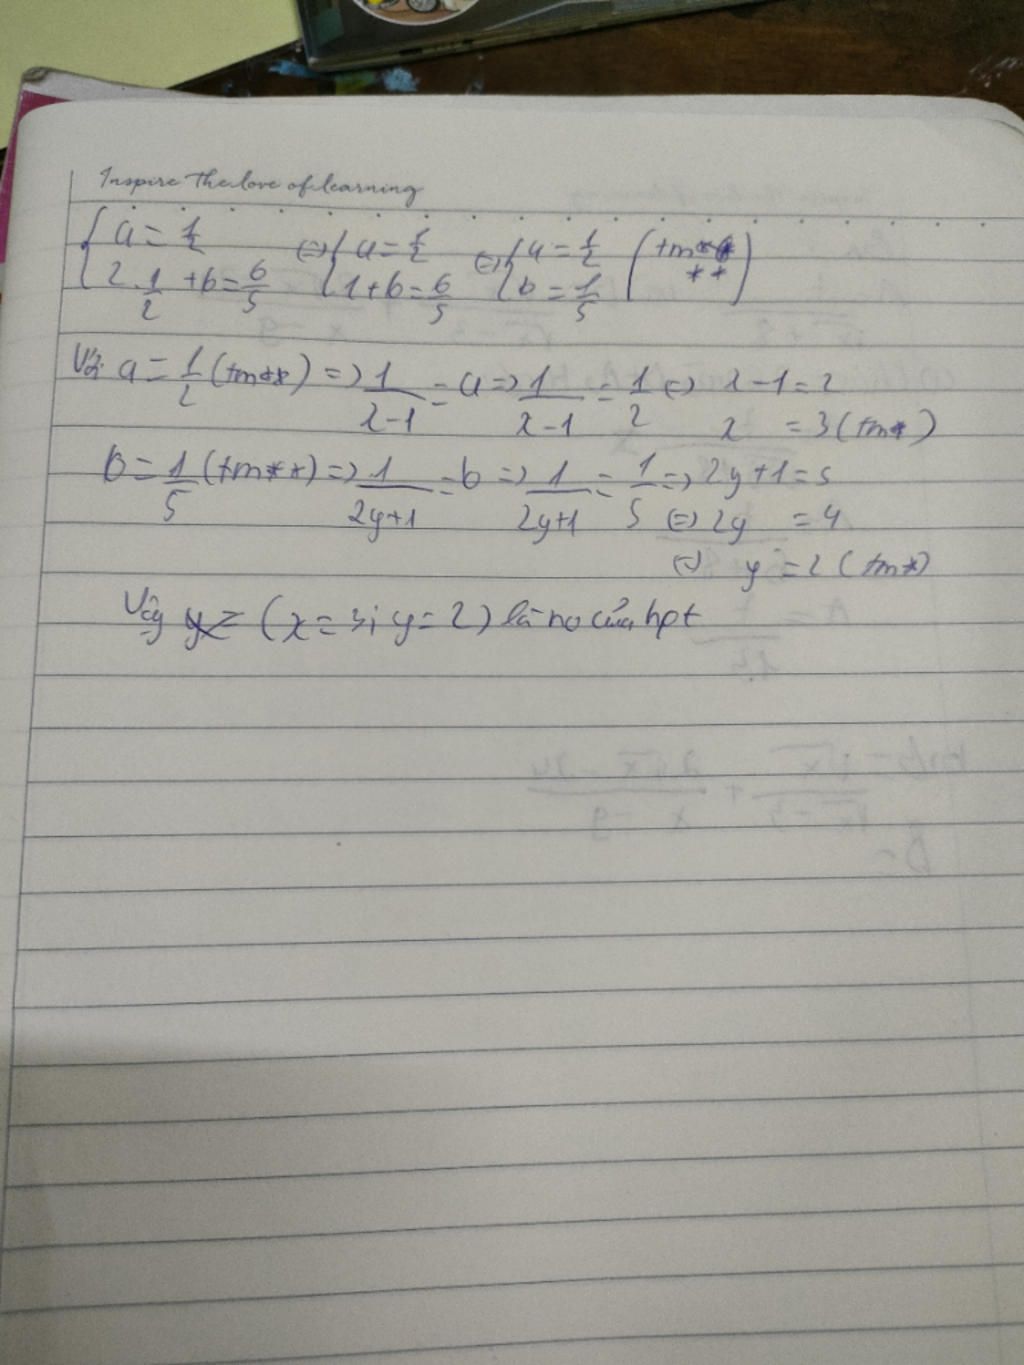 Inspire The love of learning
{ a = 1/2 ; 2 . 1/2 + b = 6/5 <=> { a = 1/2 ; 1 + b = 6/5 <=> { a = 1/2 ; b = 1/5 ( tm ** )
Với a = 1/2 (tm**) => 1/(x-1) = a => 1/(x-1) = 1/2 <=> x - 1 = 2
x = 3 (tm*)
b = 1/5 (tm**) => 1/(2y+1) = b => 1/(2y+1) = 1/5 => 2y + 1 = 5
<=> 2y = 4
<=> y = 2 (tm*)
Vậy (x = 3; y = 2) là no của hpt